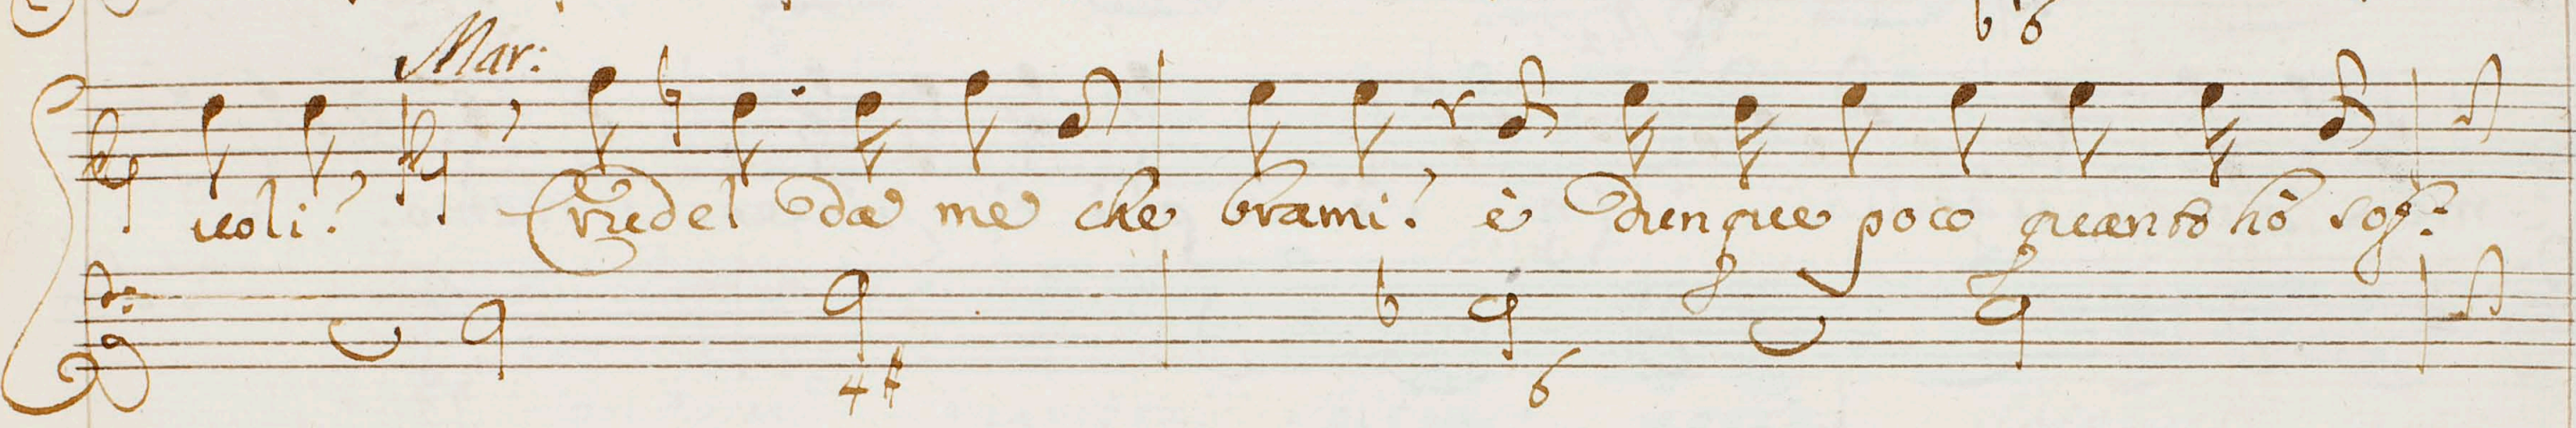 ♭ 6
Mar:
uoli? Crudel da me che brami? è dunque poco quanto hò sof:
4 #
6